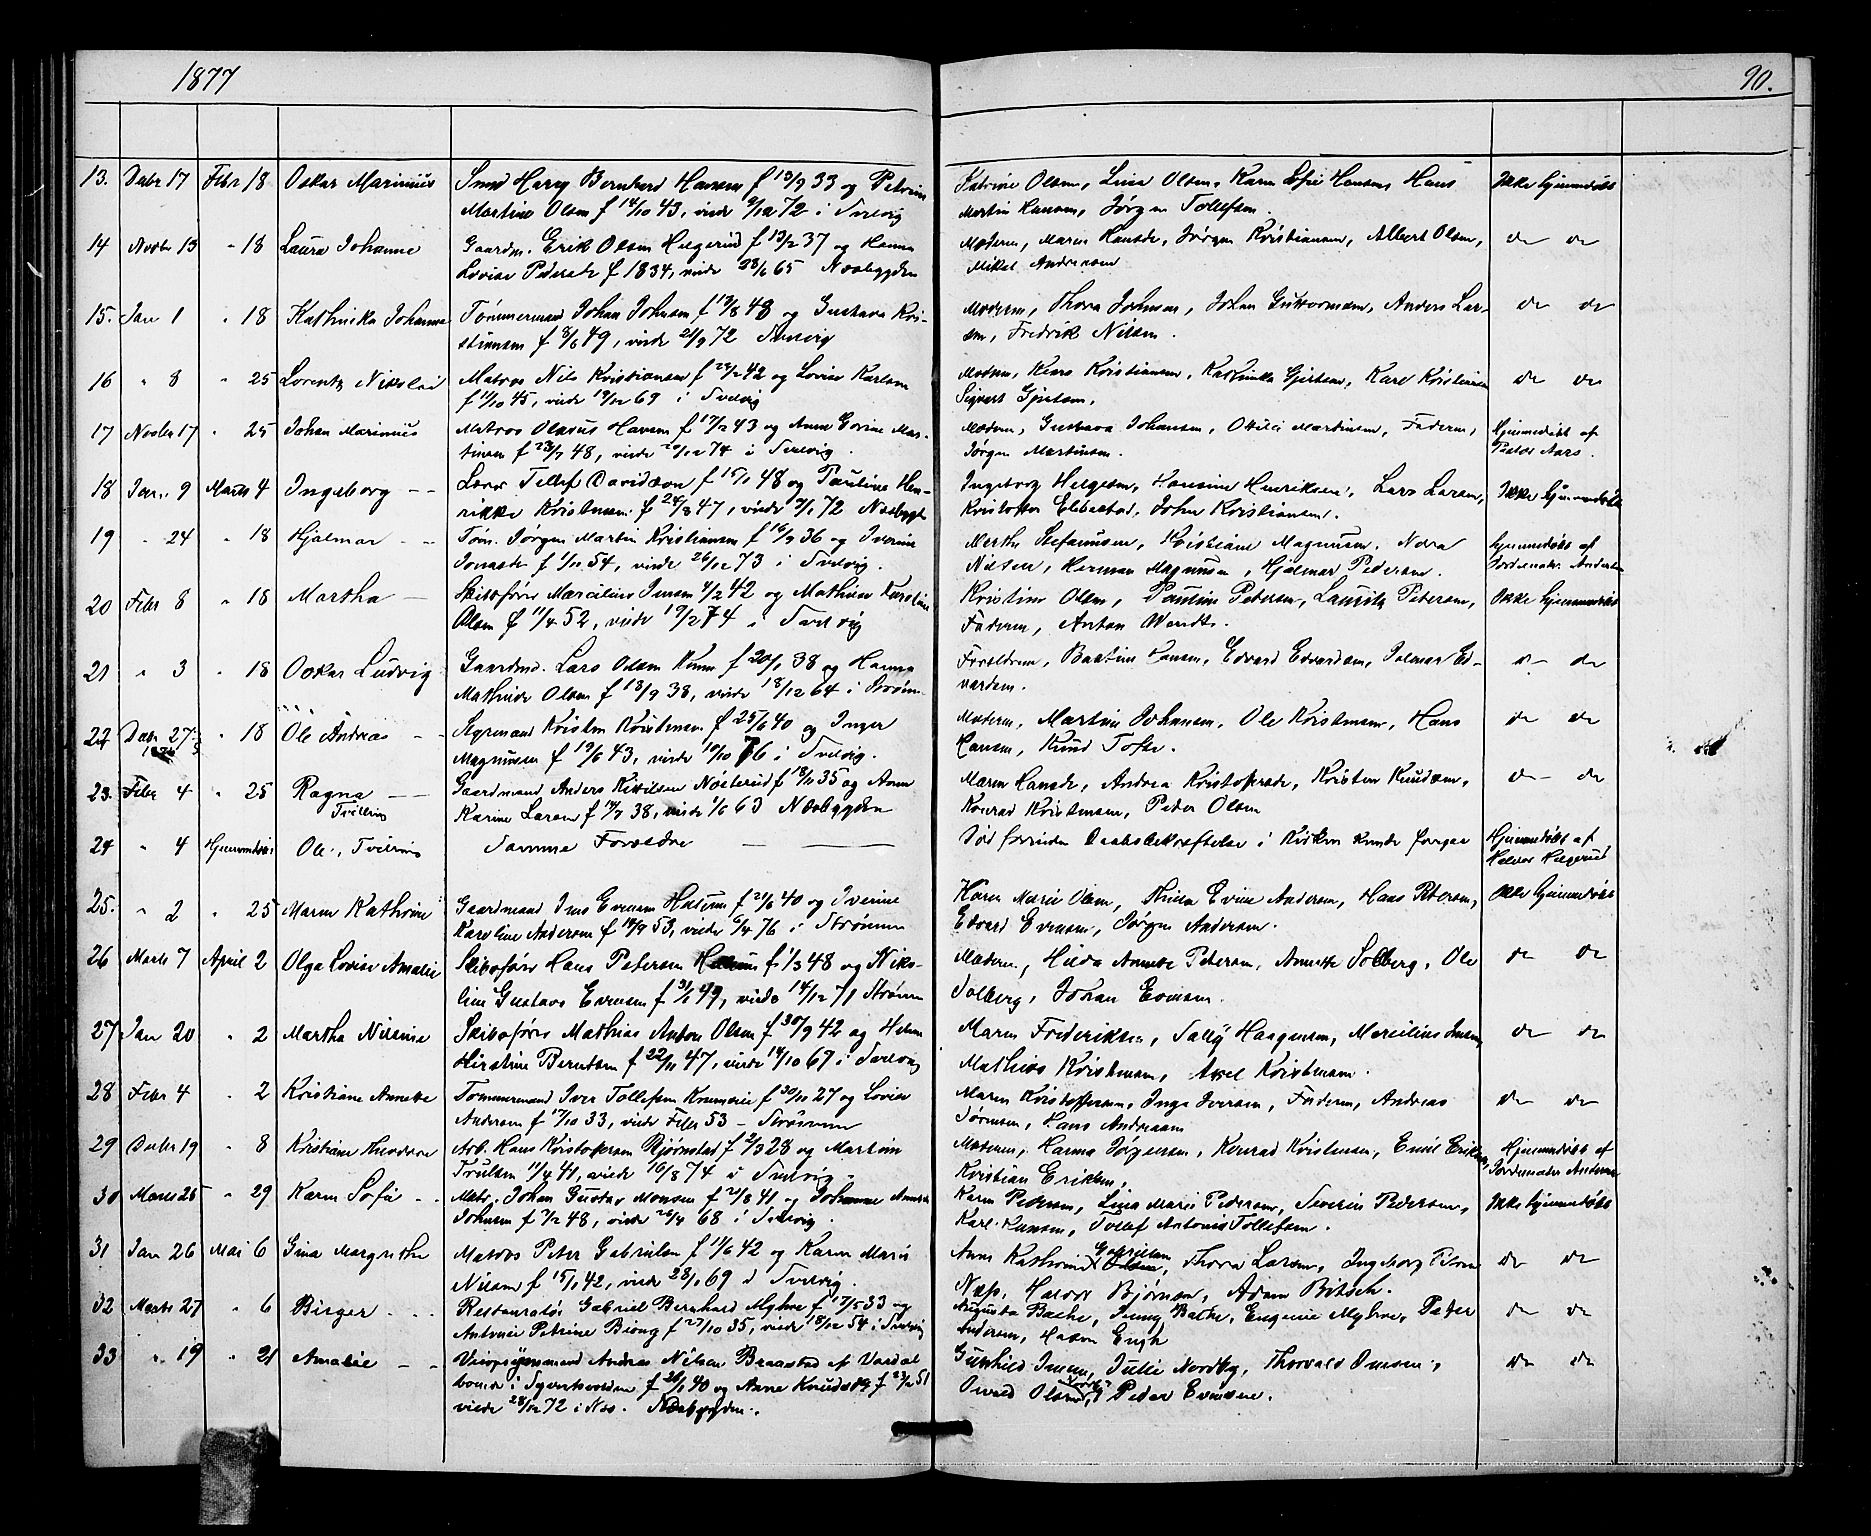 1877
90.
13. Decbr 17 Febr 18 Oskar Marinius Smed Harg Bernhard Hansen f 13/9 33 og Petrine Katrine Olsen, Lina Olsen, Karen Sofie Hansen, Hans Ikke hjemmedøbt
Martine Olsen f 14/10 43, viede /12 72 i Svelvig Martin Hansen, Jørgen Tollefsen.
14 Novbr 13 " 18 Laura Johanne Gaardm. Erik Olsen Helgerud f 13/2 37 og Hanna Moderen, Maren Hansdr, Jørgen Kristiansen, Albert Olsen, do do
Lovise Pedersdr f 1834, viede 28/6 65 Nesbygden Mikel Andreasen
15. Jan 1 " 18 Kathinka Johanne Tømmermand Johan Johnsen f 19/8 48 og Gustava Kri- Moderen, Thora Johnsen, Johan Guttormsen, Anders Lar- do do
stiansen f 8/6 49, viede 21/9 72 Svelvig sen, Fredrik Nilsen.
16 " 8 " 25 Lorentz Nikolai Matros Nils Kristiansen f 24/2 42 og Lovise Karlsen Moderen, Kristiansen, Kathinka Gjertsen, Karl Kristiansen do do
f 11/10 45, viede 19/12 69 i Svelvig Sigvart Gjertsen.
17 Novbr 17 " 25 Johan Marinius Matros Olavus Hansen f 17/2 43 og Anne Gorine Mar- Moderen, Gustava Johansen, Ottilie Martinsen, Faderen, Hjemmedøbt af
tinsen f 23/7 48, viede 20/12 74 i Svelvig. Jørgen Martinsen. Aars.
18 Jan. 9 Marts 4 Ingeborg — — Lærer Tellef Davidson f 15/1 48 og Pauline Hen- Ingeborg Helgesen, Hansine Henriksen, Lars Larsen, Ikke hjemmedøbt
rikke Kristensen f 24/8 47, viede /1 72 Nesbygd Kristoffer Ebbestad, John Kristiansen.
19 " 24 " 18 Hjalmar — — Tøm. Jørgen Martin Kristiansen f 16/9 36 og Iverine Marthe Stefanusen, Kristiane Magnusen, Nora hjemmedøbt af
Jonasdr f 1/11 54, viede 26/12 73 i Svelvig. Nilsen, Herman Magnusen, Hjalmar Pedersen. Jordemoder Andersen
20 Febr 8 " 18 Martha — Skibsfører Marcilius Jensen 4/2 42 og Mathilde Karoline Kristine Olsen, Pauline Petersen, Lauritz Petersen, Ikke hjemmedøbt
Olsen f 11/4 52, viede 19/2 74 i Svelvig Faderen, Anton Wendt.
21 " 3 " 18 Oskar Ludvig Gaardmd. Lars Olsen f 20/1 38 og Hanna Forældrene, Bastine Hansen, Edvard Edvardsen, Ed- do do
Mathilde Olsen f 18/9 38, viede 18/12 64 i Strøm. vardsen.
22 Decbr 27 " 18 Ole Andreas — — Styrmand Kristen Kristensen f 25/6 40 og Inger Moderen, Martine Johansen, Ole Kristensen, Hans do do
Magnusen f 19/6 43, viede 19/10 76 i Svelvig. Hansen, Knud Tofte.
23. Febr 4 " 25 Ragna — — Gaardmand Anders Kittilsen Nøsterud f 18/11 35 og Anne Maren Hansdr, Andrea Kristofersdr, Kristen Knudsen, do do
Tvilling Karine Larsen f 19/7 38, viede 1/6 63 Nesbygden Konrad Kristensen, Peder Olsen
24 " 4 Hjemmedøbt Ole, Tvilling Samme Forældre — — Død førinden Daabsbekræftelse i Kirken kunde foregaa Hjemmedøbt af
Halvor Helgerud
25. " 2 " 25 Maren Kathrine Gaardmand Jens Evensen Hulum f 21/6 40 og Iverine Karen Marie Olsen, Evine Andersen, Hans Petersen, Ikke hjemmedøbt
Karoline Andersen f 19/9 53, viede 6/4 76 i Strømmen Edvard Evensen, Jørgen Andersen.
26 Marts 7 April 2 Olga Lovise Amalie Skibsfører Hans Petersen f 1/3 48 og Niko- Moderen, Hilda Annette Petersen, Annette Solberg, Ole do do
line Gustava Evensen f 31/1 49, viede 14/12 71 Strømmen Solberg, Johan Evensen.
27 Jan 20 " 2 Martha Nilsine Skibsfører Mathias Anton Olsen f 30/9 42 og Helene Maren Frederiksen, Sally Haagensen, Marcilius Jensen, do do
Kirstine Berntsen f 22/11 47, viede 14/10 67 i Svelvig Mathias Kristensen, Axel Kristensen.
28 Febr 4 " 2 Kristiane Annette Tømmermand Iver Tollefsen f 30/11 27 og Lovise Maren Kristoffersen, Inga Iversen, Faderen, Andreas do do
Andersen f 17/10 33, viede Febr 53 – Strømmen Sørensen, Hans Andreasen
29 Decbr 19 " 8 Kristiane Theodora Arb. Hans Kristofersen Bjørnstad f 2/9 28 og Martine Moderen, Hanna Jørgensen, Konrad Kristensen, Emil Eriksen, Hjemmedøbt af
Trulsen 11/4 41, viede 16/8 74 i Svelvig Kristian Eriksen, Jordemoder Andersen
30 Marts 25 " 29 Karen Sofie — Matr. Johan Gustav Monsen f 21/8 41 og Johanne Karen Pedersen, Lina Marie Pedersen, Severin Pedersen, Ikke hjemmedøbt
Johnsen f 7/2 48, viede 26/4 68 i Svelvig. Karl Hansen, Tollef Antonius Tollefsen.
31 Jan 26 Mai 6 Gina Margrethe Matros Peter Gabrielsen f 11/6 42 og Karen Marie Anne Kathrine Gabrielsen, Thora Larsen, Ingeborg do do
Nilsen f 15/1 42, viede 28/1 69 i Svelvig. Næss, Bjørnsen, Adam Bitsch.
32 Marts 27 " 6 Birger — Restauratør Gabriel Bernhard Myhre f 17/5 33 og Augusta Bache, Jenny Bache, Eugenie Myhre, Peder do do
Antonie Petrine Biong f 27/10 35, viede 18/12 54 i Svelvig Andersen, Hakon Engh
33 " 19 " 21 Amalie — — Andreas Nilsen Braastad af Vardal Gunhild Jensen, Julie Nordby, Thorvald Jensen, do do
boende i f 26/1 40 og Anne Knudsdtr f 23/2 51 Olsen, Peder Evensen.
viede 28/12 72 i Næs. Nesbygden.